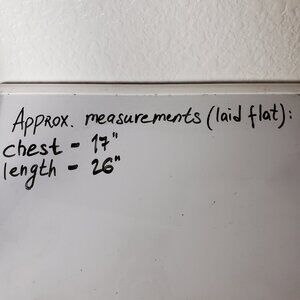 Approx. measurements (laid flat):
chest - 17"
length - 26"